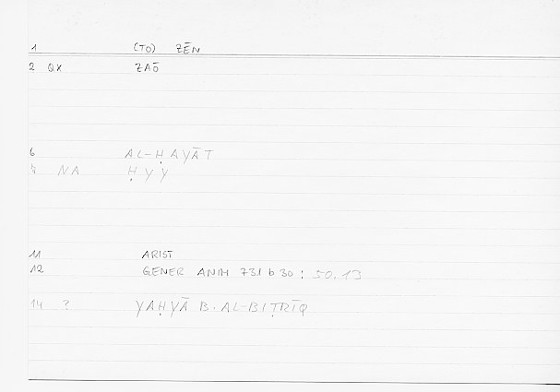 1 (TO) ZĒN
2 QX ZAŌ
6 AL-ḤAYĀT
5 NA ḤYY
11 ARIST
12 GENER ANIM 731 b 30 : 50.13
14 ? YAḤYĀ B. AL-BIṬRĪQ